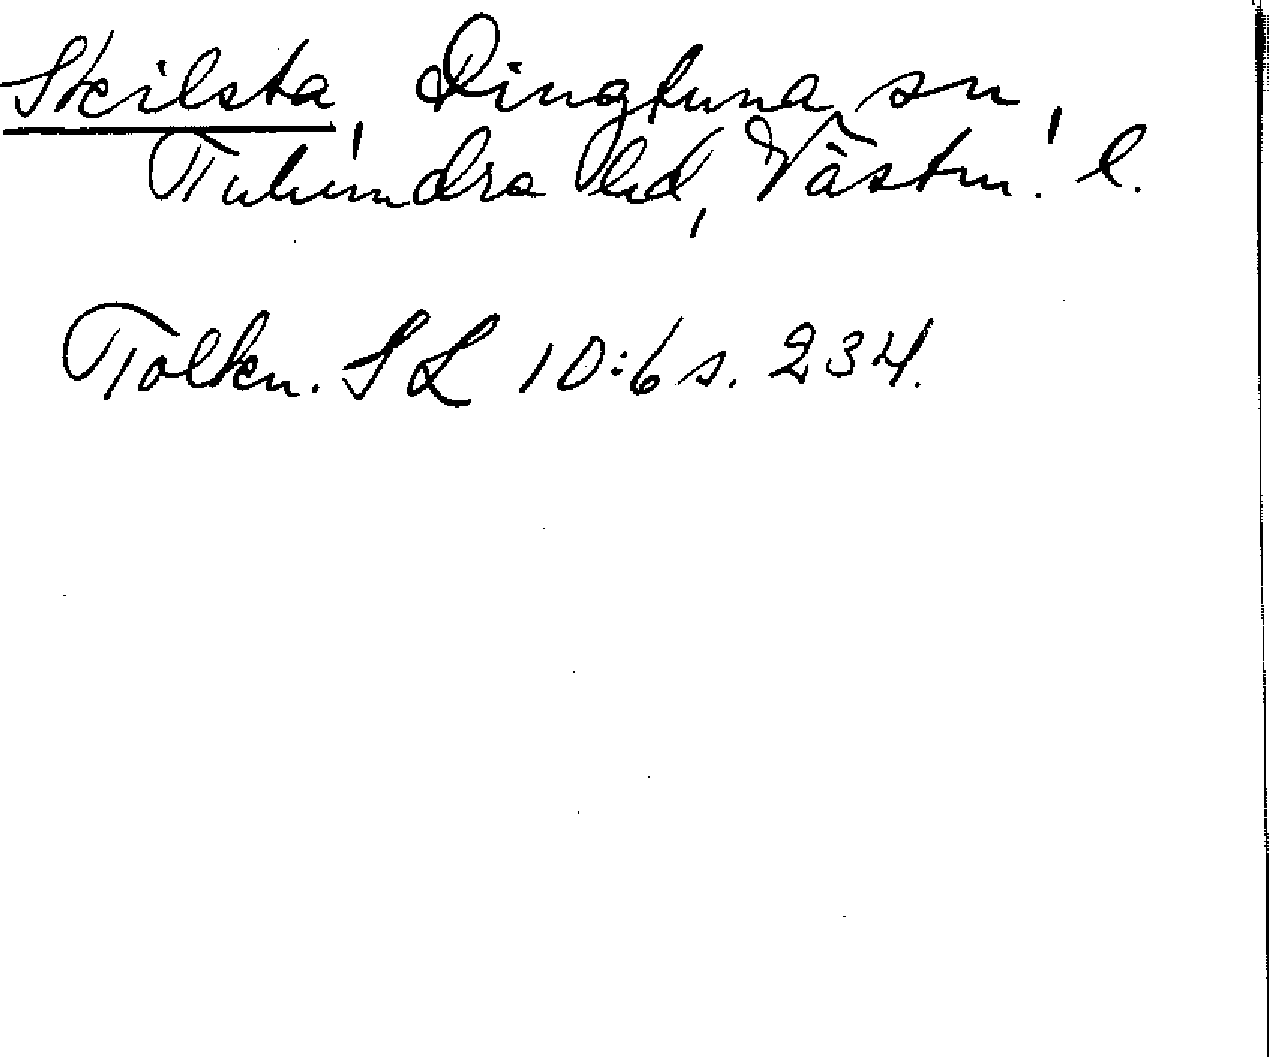 Skilsta, Dingtuna sn,
Tuhundra hd, Västm. l.
Tolkn. SL 10:6 s. 234.